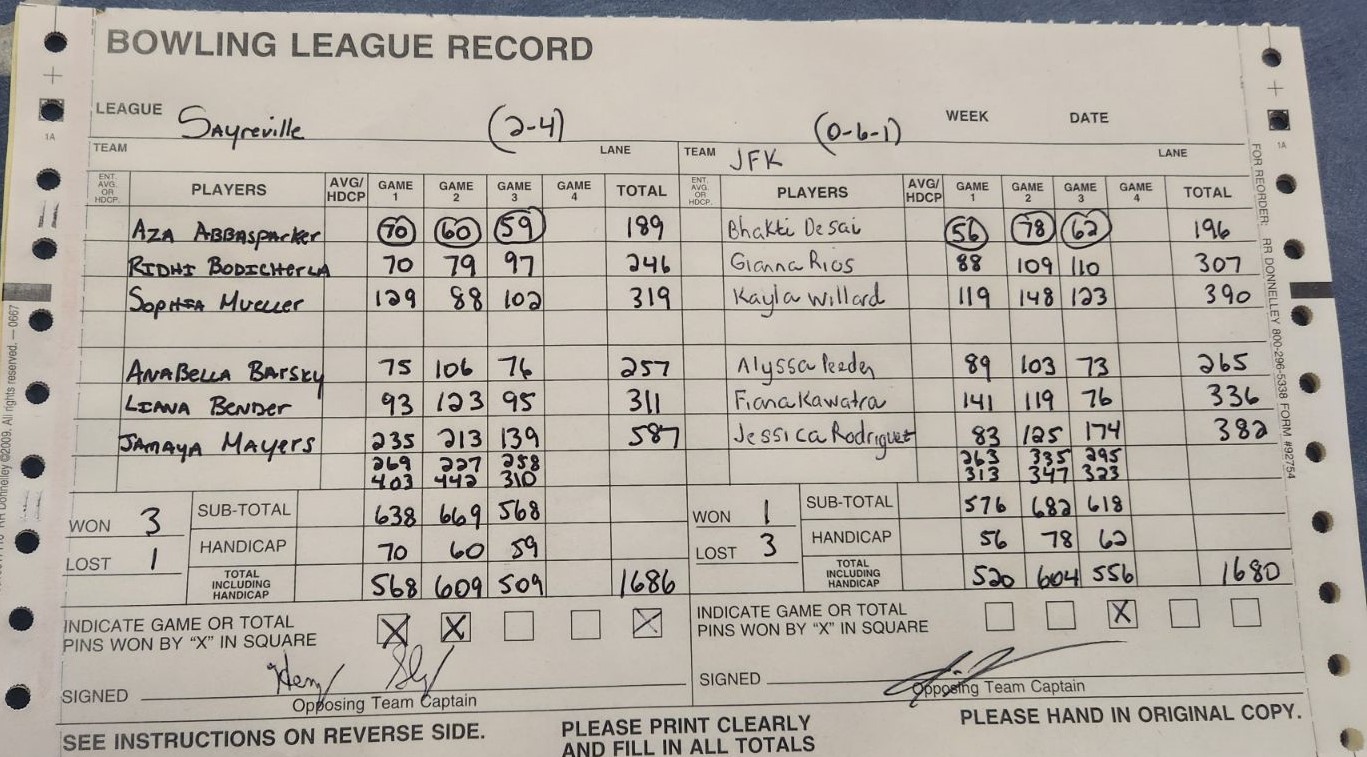 BOWLING LEAGUE RECORD
LEAGUE Sayreville (2-4) (0-6-1) WEEK DATE
TEAM LANE TEAM JFK LANE
ENT. AVG. OR HDCP. PLAYERS AVG/HDCP GAME 1 GAME 2 GAME 3 GAME 4 TOTAL ENT. AVG. OR HDCP. PLAYERS AVG/HDCP GAME 1 GAME 2 GAME 3 GAME 4 TOTAL
AZA ABBASPARKER 70 60 59 189 Bhakti Desai 56 78 62 196
RIDHI BODICHERLA 70 79 97 246 Gianna Rios 88 109 110 307
SOPHIA MUELLER 129 88 102 319 Kayla Willard 119 148 123 390
ANABELLA BARSKY 75 106 76 257 Alyssa 89 103 73 265
LIANA BENDER 93 123 95 311 Fiona Kawatra 141 119 76 336
JAMAYA MAYERS 235 213 139 587 Jessica Rodriguez 83 125 174 382
269 227 258 263 335 295
403 442 310 313 347 323
WON 3 SUB-TOTAL 638 669 568 WON 1 SUB-TOTAL 576 682 618
LOST 1 HANDICAP 70 60 59 LOST 3 HANDICAP 56 78 62
TOTAL INCLUDING HANDICAP 568 609 509 1686 TOTAL INCLUDING HANDICAP 520 604 556 1680
INDICATE GAME OR TOTAL PINS WON BY "X" IN SQUARE X X X INDICATE GAME OR TOTAL PINS WON BY "X" IN SQUARE X
SIGNED SIGNED
Opposing Team Captain Opposing Team Captain
SEE INSTRUCTIONS ON REVERSE SIDE. PLEASE PRINT CLEARLY AND FILL IN ALL TOTALS PLEASE HAND IN ORIGINAL COPY.
FOR REORDER: RR DONNELLEY 800-296-5338 FORM #92754
RR Donnelley ©2009. All rights reserved. — 0667
1A
1A